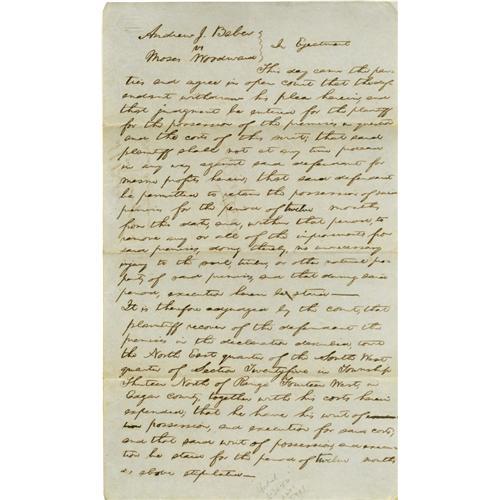 Andrew J. Baber
vs
Moses Woodward
In Ejectment
This day came the par-
ties and agree in open court that the def-
endant withdraw his plea herein, and
that judgment be entered for the plaintiff
for the possession of the premises in question
and the costs of this suit; that said
plaintiff shall not at any time proceed
in any way against said defendant for
mesne profits herein; that said defendant
be permitted to retain the possession of said
premises for the period of twelve months
from this date, and, within that period, to
remove any or all of the improvements from
said premises, doing thereby, no unnecessary
injury to the soil, timber, or other natural pro-
perty of said premises, and that during said
period, execution herein be stayed
It is therefore adjudged by the court, that
plaintiff recover of the defendant the
premises in the declaration described, to wit
the North East quarter of the South West
quarter of Section Twenty five in Township
Thirteen North of Range Fourteen West, in
Edgar County, together with his costs herein
expended; that he have his writ of
possession, and execution for said costs,
and that said writ of possession and execu-
tion be stayed for the period of twelve months
as above stipulated